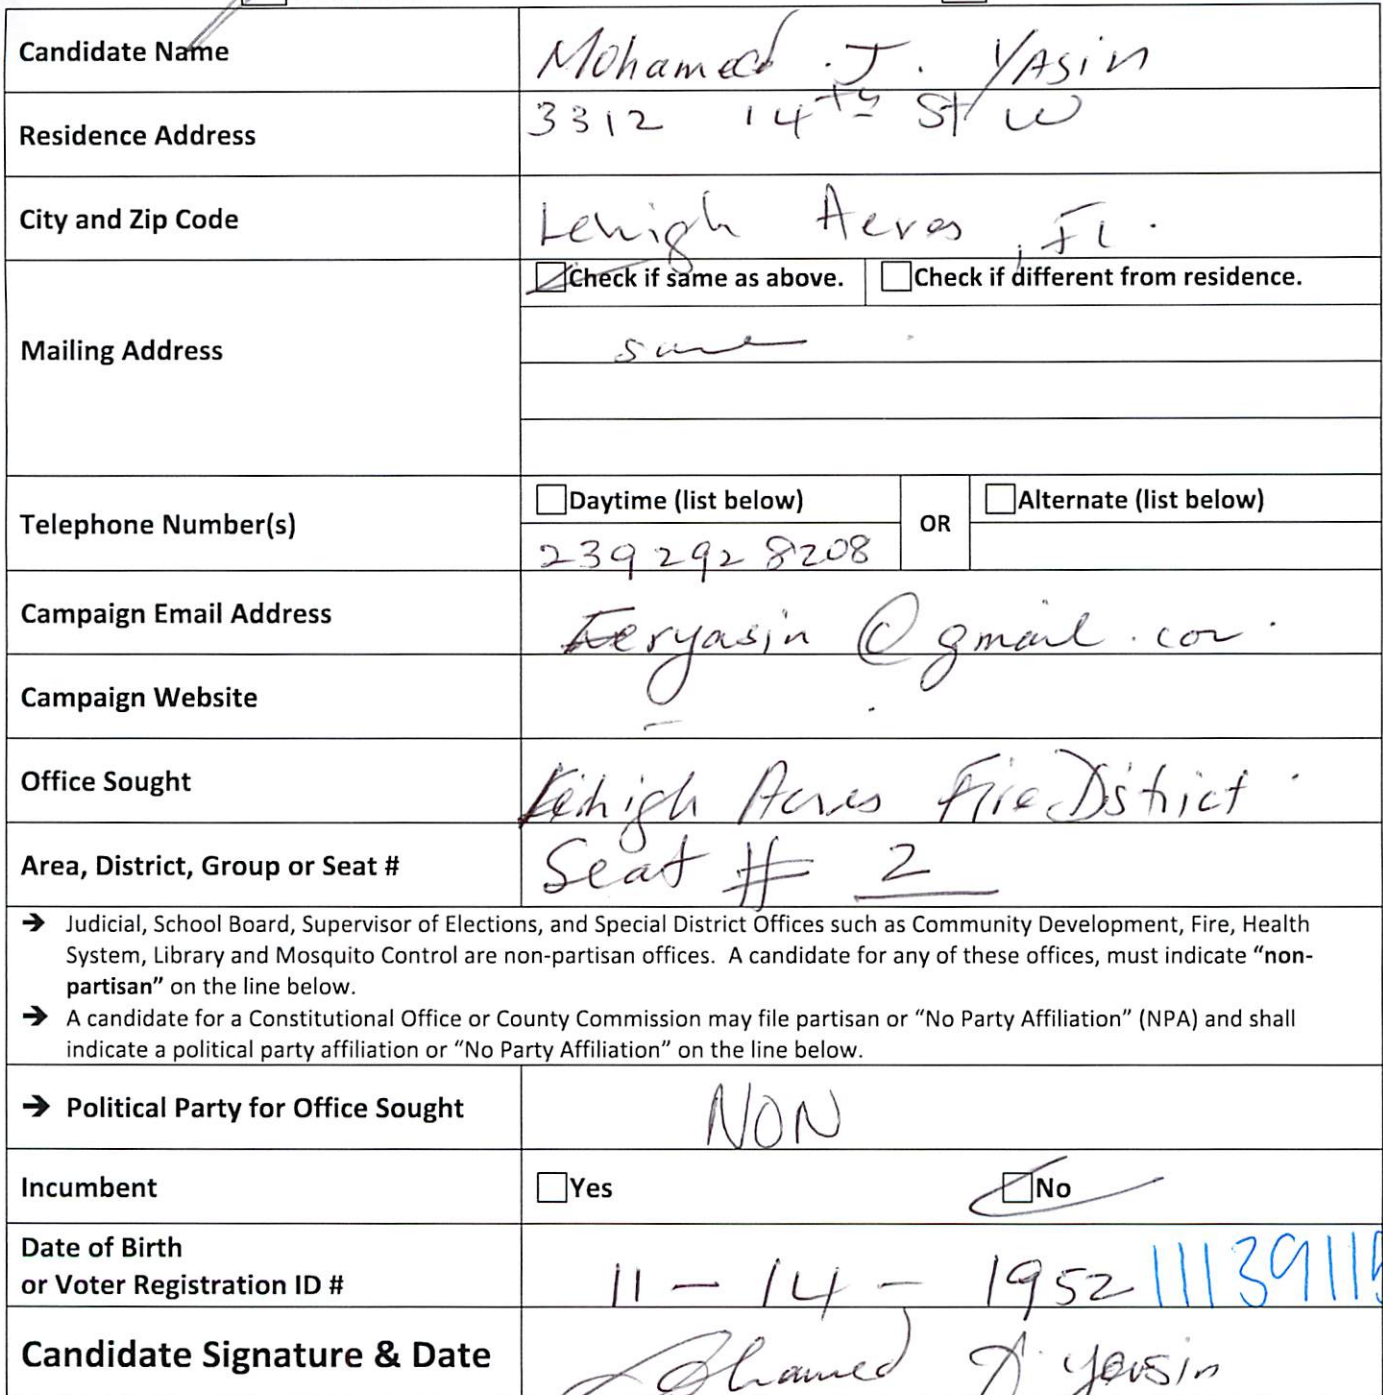 Candidate Name Mohamed . J. YAsin
Residence Address 3312 14th St W
City and Zip Code Lehigh Acres, Fl.
☑Check if same as above. ☐Check if different from residence.
Mailing Address same
☐Daytime (list below) OR ☐Alternate (list below)
Telephone Number(s) 239 292 8208
Campaign Email Address yasin @gmail.
Campaign Website
Office Sought Lehigh Acres Fire District
Area, District, Group or Seat # Seat # 2
➔ Judicial, School Board, Supervisor of Elections, and Special District Offices such as Community Development, Fire, Health
System, Library and Mosquito Control are non-partisan offices. A candidate for any of these offices, must indicate “non-
partisan” on the line below.
➔ A candidate for a Constitutional Office or County Commission may file partisan or “No Party Affiliation” (NPA) and shall
indicate a political party affiliation or “No Party Affiliation” on the line below.
➔ Political Party for Office Sought NON
Incumbent ☐Yes ☑No
Date of Birth
or Voter Registration ID # 11 - 14 - 1952 11139115
Candidate Signature & Date Mohamed J. Yasin